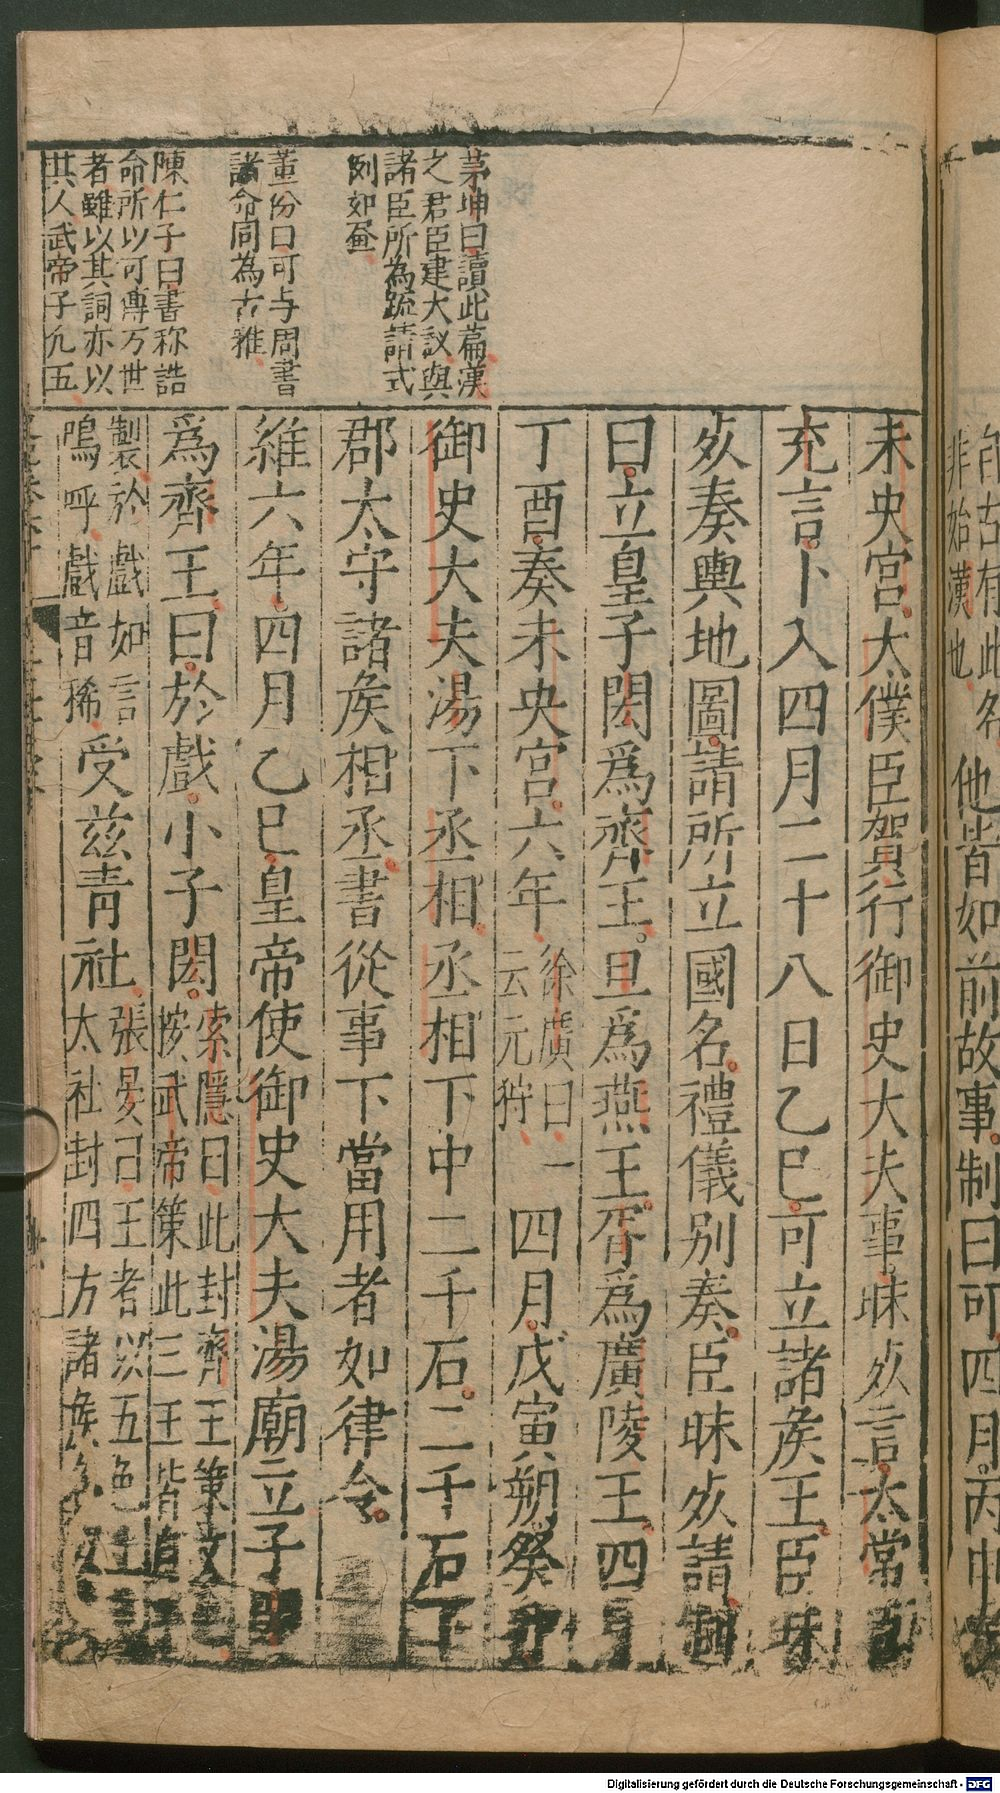 前古有此名
非始漢也
他皆如前故事制曰可四月丙申
未央宫大僕臣賀行御史大夫事昧死言太常
充言卜入四月二十八日乙巳可立諸矦王臣昧
死奏輿地圖請所立國名禮儀別奏臣昧死請制
曰立皇子閎爲齊王旦爲燕王胥爲廣陵王四
丁酉奏未央宫六年
徐廣曰一
云元狩
四月戊寅朔癸
御史大夫湯下丞相丞相下中二千石二千石下
郡太守諸矦相丞書從事下當用者如律令
維六年四月乙巳皇帝使御史大夫湯廟立子
爲齊王曰於戲小子閎
索隱曰此封齊王策文
按武帝策此三王皆自
製於戲如言
鳴呼戲音稀
受兹青社
張晏曰王者以五色土
太社封四方諸矦各以
茅坤曰讀此篇漢
之君臣建大議與
諸臣所為疏請式
例如畫
董份曰可与周書
諸命同為古雅
陳仁子曰書称誥
命所以可傳万世
者雖以其詞亦以
其人武帝子凢五
Digitalisierung gefördert durch die Deutsche Forschungsgemeinschaft - DFG